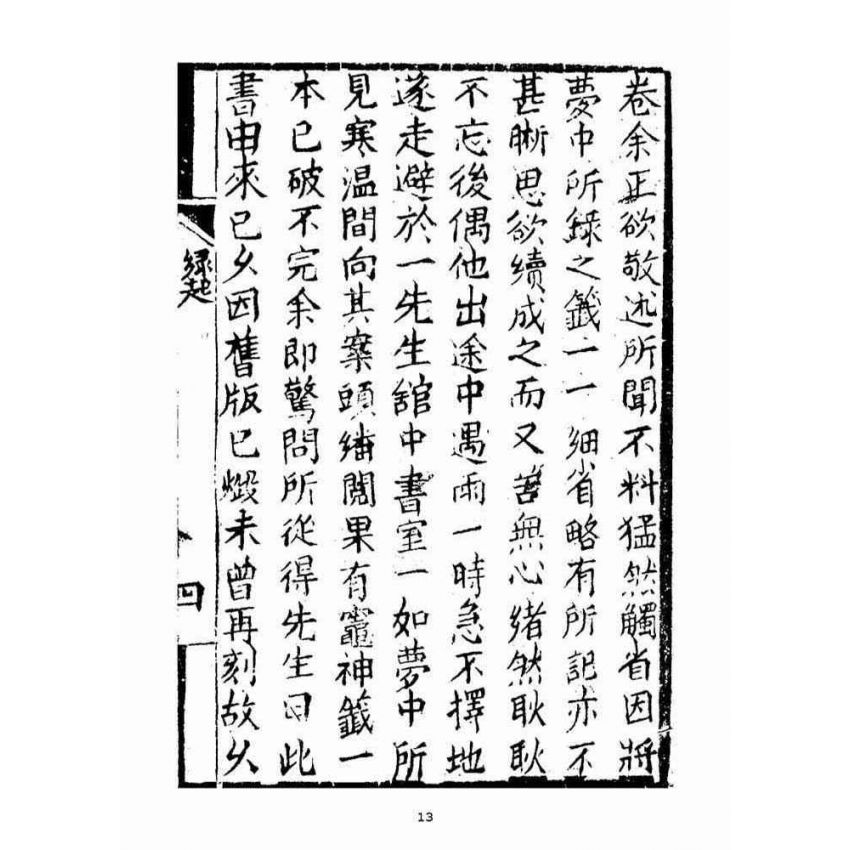 卷余正欲敬述所聞不料猛然觸省因將
夢中所錄之籤一一細省略有所記亦不
甚晰思欲續成之而又苦無心緒然耿耿
不忘後偶他出途中遇雨一時急不擇地
遂走避於一先生舘中書室一如夢中所
見寒温間向其案頭繙閱果有竈神籤一
本已破不完余即驚問所從得先生曰此
書由來已久因舊版已燬未曾再刻故久
緣起
四
13